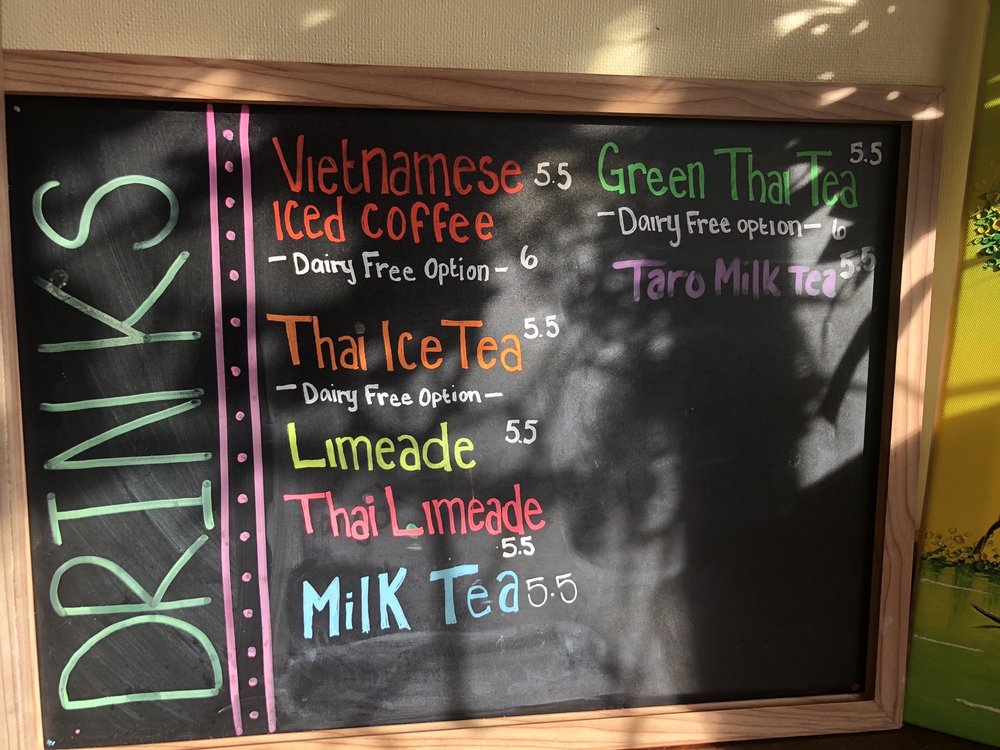 DRINKS
Vietnamese 5.5
Iced Coffee
- Dairy Free Option - 6
Thai Ice Tea 5.5
- Dairy Free Option -
Limeade 5.5
Thai Limeade
5.5
Milk Tea 5.5
Green Thai Tea 5.5
- Dairy Free option - 6
Taro Milk Tea 5.5